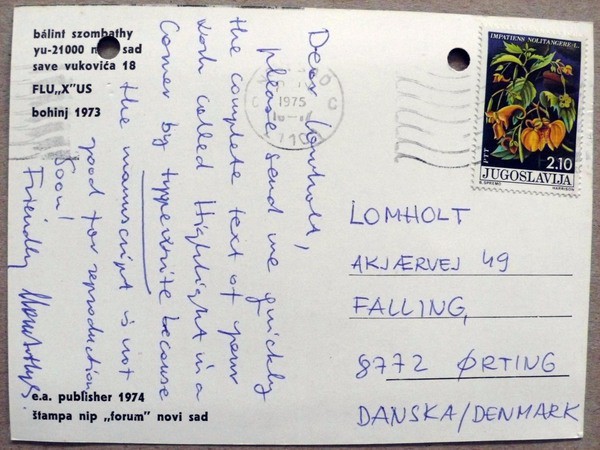 bálint szombathy
yu-21000 n sad
save vukovića 18
FLU„X"US
bohinj 1973
Dear Lomholt,
please send me quickly
the complete text of your
work called Highlight in a
Comer by typewrite because
the manuscript is not
good for reproduction
Soon!
Friendly
e.a. publisher 1974
štampa nip „forum" novi sad
1975
IMPATIENS NOLITANGERE L.
PTT
2.10
JUGOSLAVIJA
HARRISON
LOMHOLT
AKJÆRVEJ 49
FALLING,
8772 ØRTING
DANSKA/DENMARK